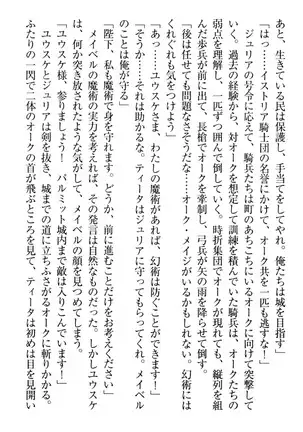 あと、生きている民は保護し、手当をしてやれ。俺たちは城を目指す」
「はっ……イストリア騎士団の名誉にかけて、オーク共を一匹も逃すな！」
ジュリアの号令に応じて、騎兵たちは町のあちこちにいるオークに向けて突撃して
いく。過去の経験から、対オークを想定して訓練を積んでいた騎兵は、オークたちの
弱点を理解し、一匹ずつ囲んで倒していく。時折集団でオークが現れても、縦列を組
んだ歩兵が前に出て、長槍でオークを牽制し、弓兵が矢の雨を降らせて倒す。
「後は任せても問題なさそうだな……オーク・メイジがいるかもしれない。幻術には
くれぐれも気をつけよう」
「はっ……ユウスケさま、わたしの魔術があれば、幻術は防ぐことができます」
「そうか……それは助かるな。ティータはジュリアに守ってもらえ。メイベル
のことは俺が守る」
「陛下、私も魔術で身を守れます。どうか、前に進むことだけをお考えください」
メイベルの魔術の実力を考えれば、その発言は自然なものだった。しかしユウスケ
は、何か突き放されたような気がして、メイベルの顔を見つめてしまう。
「ユウスケ様、参りましょう！　パルミット城内まで敵は入りこんでいます！」
ユウスケとジュリアは剣を抜き、城までの道に立ちふさがるオークに斬りかかる。
ふたりの一閃で二体のオークの首が飛ぶところまで見て、ティータは初めは目を見開い